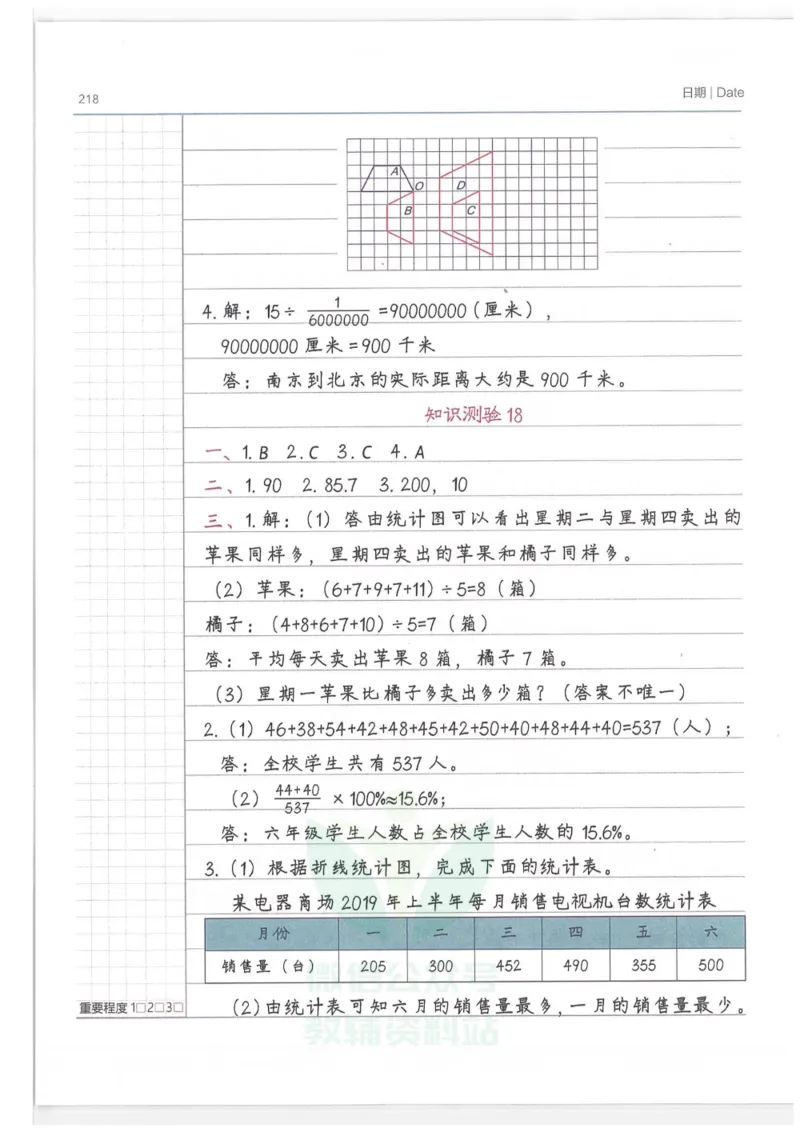 218
日期 | Date
A
O
D
B
C
4.解：15÷ 1/6000000 =90000000（厘米），
90000000 厘米=900 千米
答：南京到北京的实际距离大约是 900 千米。
知识测验 18
一、1.B 2.C 3.C 4.A
二、1.90 2.85.7 3.200，10
三、1.解：（1）答由统计图可以看出星期二与星期四卖出的
苹果同样多，星期四卖出的苹果和橘子同样多。
（2）苹果：（6+7+9+7+11）÷5=8（箱）
橘子：（4+8+6+7+10）÷5=7（箱）
答：平均每天卖出苹果 8 箱，橘子 7 箱。
（3）星期一苹果比橘子多卖出多少箱？（答案不唯一）
2.（1）46+38+54+42+48+45+42+50+40+48+44+40=537（人）；
答：全校学生共有 537 人。
（2） 44+40/537 ×100%≈15.6%；
答：六年级学生人数占全校学生人数的 15.6%。
3.（1）根据折线统计图，完成下面的统计表。
某电器商场 2019 年上半年每月销售电视机台数统计表
月份 一 二 三 四 五 六
销售量（台） 205 300 452 490 355 500
微信公众号
重要程度 1□2□3□
（2）由统计表可知六月的销售量最多，一月的销售量最少。
教辅资料站